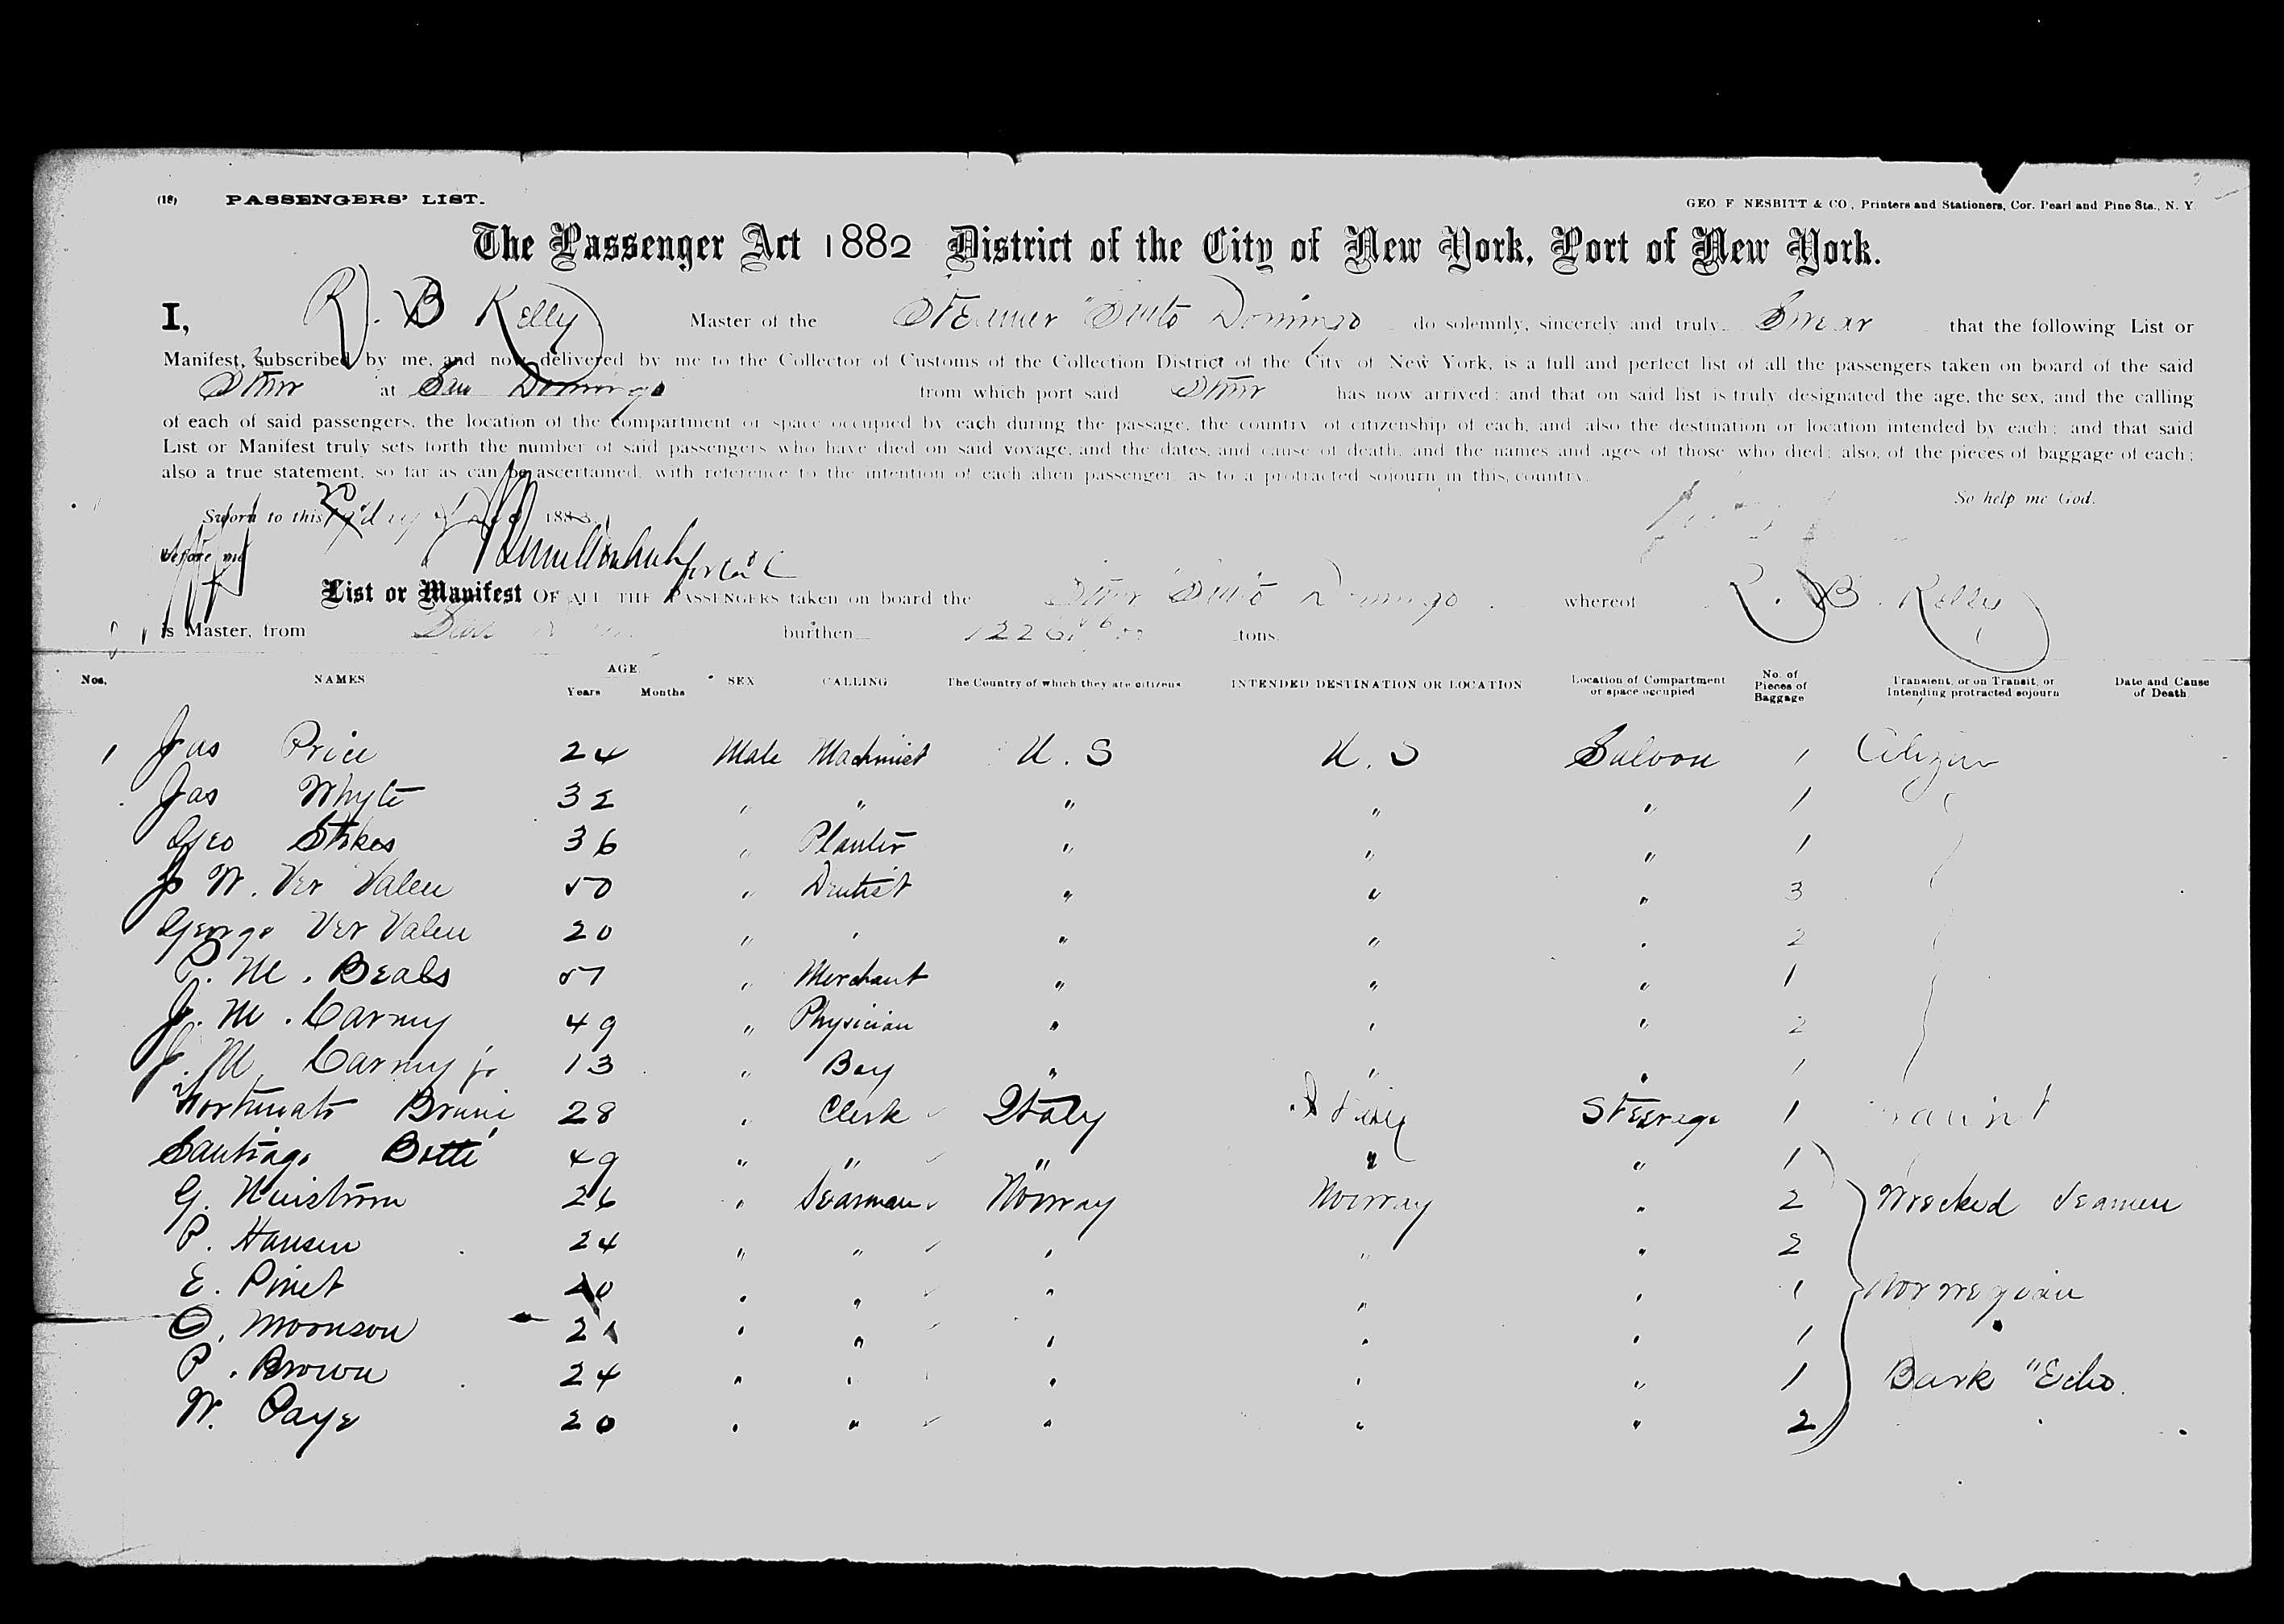 (18) PASSENGERS' LIST. GEO. F. NESBITT & CO., Printers and Stationers, Cor. Pearl and Pine Sts., N. Y.
The Passenger Act 1882 District of the City of New York, Port of New York.
I, R. B Kelly Master of the Steamer "Santo Domingo do solemnly, sincerely and truly Swear that the following List or
Manifest, subscribed by me, and now delivered by me to the Collector of Customs of the Collection District of the City of New York, is a full and perfect list of all the passengers taken on board of the said
Stmr at San Domingo from which port said Stmr has now arrived; and that on said list is truly designated the age, the sex, and the calling
of each of said passengers, the location of the compartment or space occupied by each during the passage, the country of citizenship of each, and also the destination or location intended by each; and that said
List or Manifest truly sets forth the number of said passengers who have died on said voyage, and the dates, and cause of death, and the names and ages of those who died; also, of the pieces of baggage of each;
also a true statement, so far as can be ascertained, with reference to the intention of each alien passenger, as to a protracted sojourn in this country.
So help me God.
Sworn to this 188
before me
List or Manifest OF ALL THE PASSENGERS taken on board the Stmr Santo Domingo whereof R. B. Kelly
is Master, from burthen tons.
Nos. NAMES AGE Years Months SEX CALLING The Country of which they are citizens INTENDED DESTINATION OR LOCATION Location of Compartment or space occupied No. of Pieces of Baggage Transient, or on Transit, or Intending protracted sojourn Date and Cause of Death
1 Jas Price 24 Male Machinist U. S U. S Saloon 1 Citizen
Jas Whyte 32 " " " " " 1 "
Geo Stokes 36 " Planter " " " 1
J W. Ver Valen 50 " Dentist " " " 3
George Ver Valen 20 " " " " " 2
P. M. Beals 57 " Merchant " " " 1
J. M. Carmy 49 " Physician " " " 2
J. M. Carmy jr 13 " Boy " " " 1
Fortunato Bruni 28 " Clerk Italy Italy Steerage 1
Santiago Botti 49 " " " " " 1
G. 26 " Seaman Norway Norway " 2 Wrecked Seamen
P. Hansen 24 " " " " " 2
E. Pinet 20 " " " " " 1 Norwegian
O. Moonson 2 " " " " " 1
P. Brown 24 " " " " " 1 Bark "Echo.
W. Paye 20 " " " " " 2